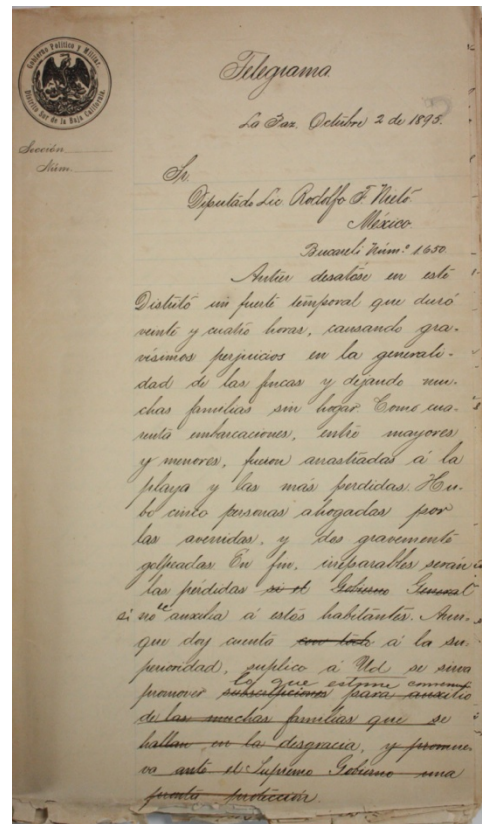 Gobierno Político y Militar.
Distrito Sur de la Baja California.
Sección
Núm.
Telegrama.
La Paz, Octubre 2 de 1895.
Sr.
Diputado Lic Rodolfo F. Nieto.
México.
Bucareli Núm.º 1650.
Antier desatóse en este
Distrito un fuerte temporal que duró
veinte y cuatro horas, causando gra-
vísimos perjuicios en la generali-
dad de las fincas y dejando mu-
chas familias sin hogar. Como cua-
renta embarcaciones, entre mayores
y menores, fueron arrastradas á la
playa y las más perdidas. Hu-
bo cinco personas ahogadas por
las avenidas, y dos gravemente
golpeadas. En fin, irreparables serán
las pérdidas si el Gobierno General
si no se auxilia á estos habitantes. Aun-
que doy cuenta con todo á la su-
perioridad, suplico á Ud se sirva
lo que estime
promover subscripciones para auxilio
de las muchas familias que se
hallan en la desgracia, y promue-
va ante el Supremo Gobierno una
pronta protección.